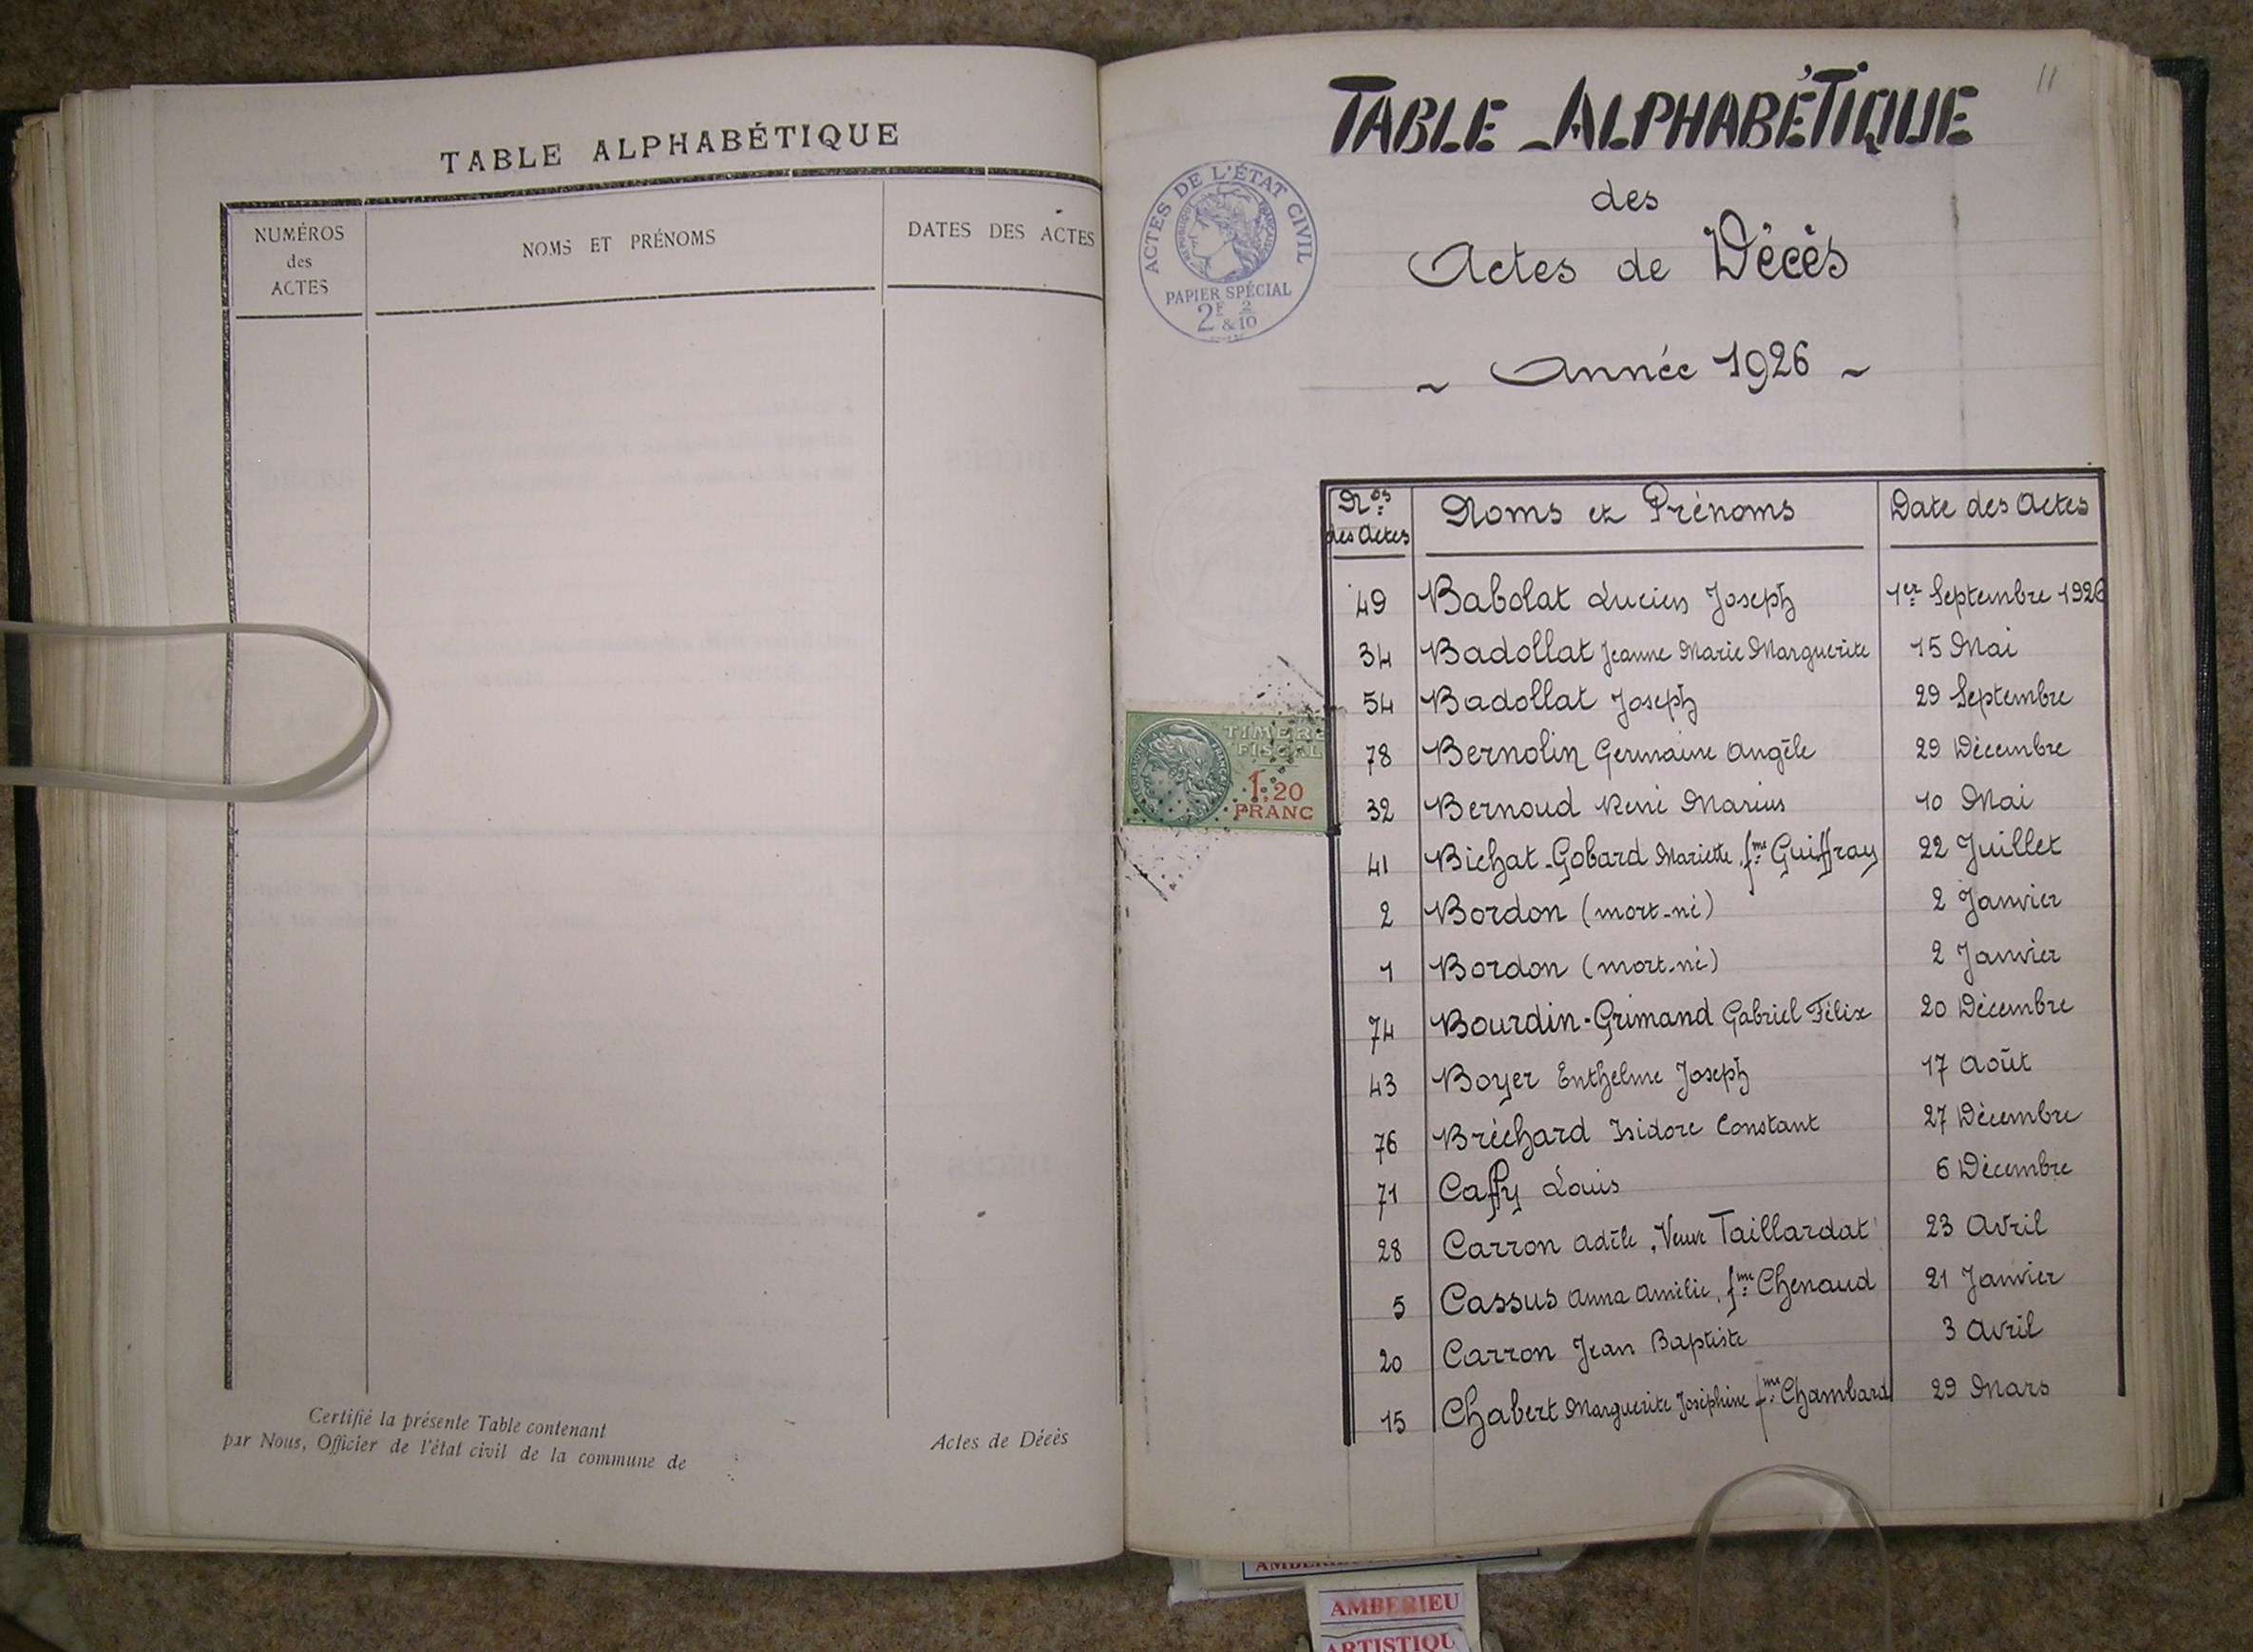 TABLE ALPHABÉTIQUE
NUMÉROS
des
ACTES
NOMS ET PRÉNOMS
DATES DES ACTES
Certifié la présente Table contenant
Actes de Décès
par Nous, Officier de l'état civil de la commune de
11
TABLE ALPHABÉTIQUE
des
Actes de Décès
~ Année 1926 ~
ACTES DE L'ÉTAT CIVIL
RÉPUBLIQUE FRANÇAISE
PAPIER SPÉCIAL
2F 2
& 10
TIMBRE
FISCAL
1,20
FRANC
Nos des Actes Noms et Prénoms Date des Actes
49 Babolat Lucien Joseph 1er Septembre 1926
34 Badollat Jeanne Marie Marguerite 15 Mai
54 Badollat Joseph 29 Septembre
78 Bernolin Germaine Angèle 29 Décembre
32 Bernoud René Marius 10 Mai
41 Bichat-Gobard Mariette, fme Guiffray 22 Juillet
2 Bordon (mort-né) 2 Janvier
1 Bordon (mort-né) 2 Janvier
74 Bourdin-Grimand Gabriel Félix 20 Décembre
43 Boyer Enthelme Joseph 17 Août
76 Bréchard Isidore Constant 27 Décembre
71 Caffy Louis 6 Décembre
28 Carron Adèle, Veuve Taillardat 23 Avril
5 Cassus Anna Amélie, fme Chenaud 21 Janvier
20 Carron Jean Baptiste 3 Avril
15 Chabert Marguerite Joséphine fme Chambard 29 Mars
AMBERIEU